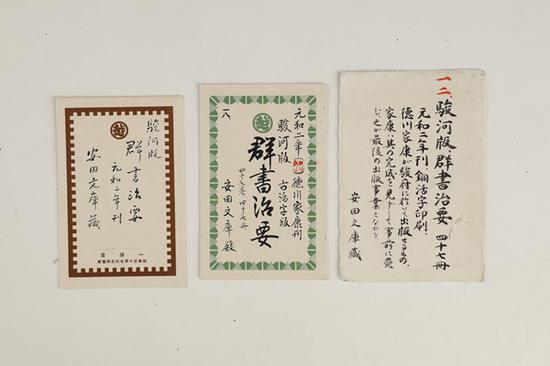 一二、駿河版群書治要 四十七冊
元和二年刊 銅活字印刷.
徳川家康が駿府に於いて出版せるもの、
家康は其の完成を見ずして事前に薨
じ之が最後の出版事業となれり
安田文庫藏
元和二年 徳川家康刊
駿河版 古活字版
群書治要
四十七巻 四十七冊
安田文庫殿
一八
駿河版
群書治要
元和二年刊
安田文庫藏
一誠堂